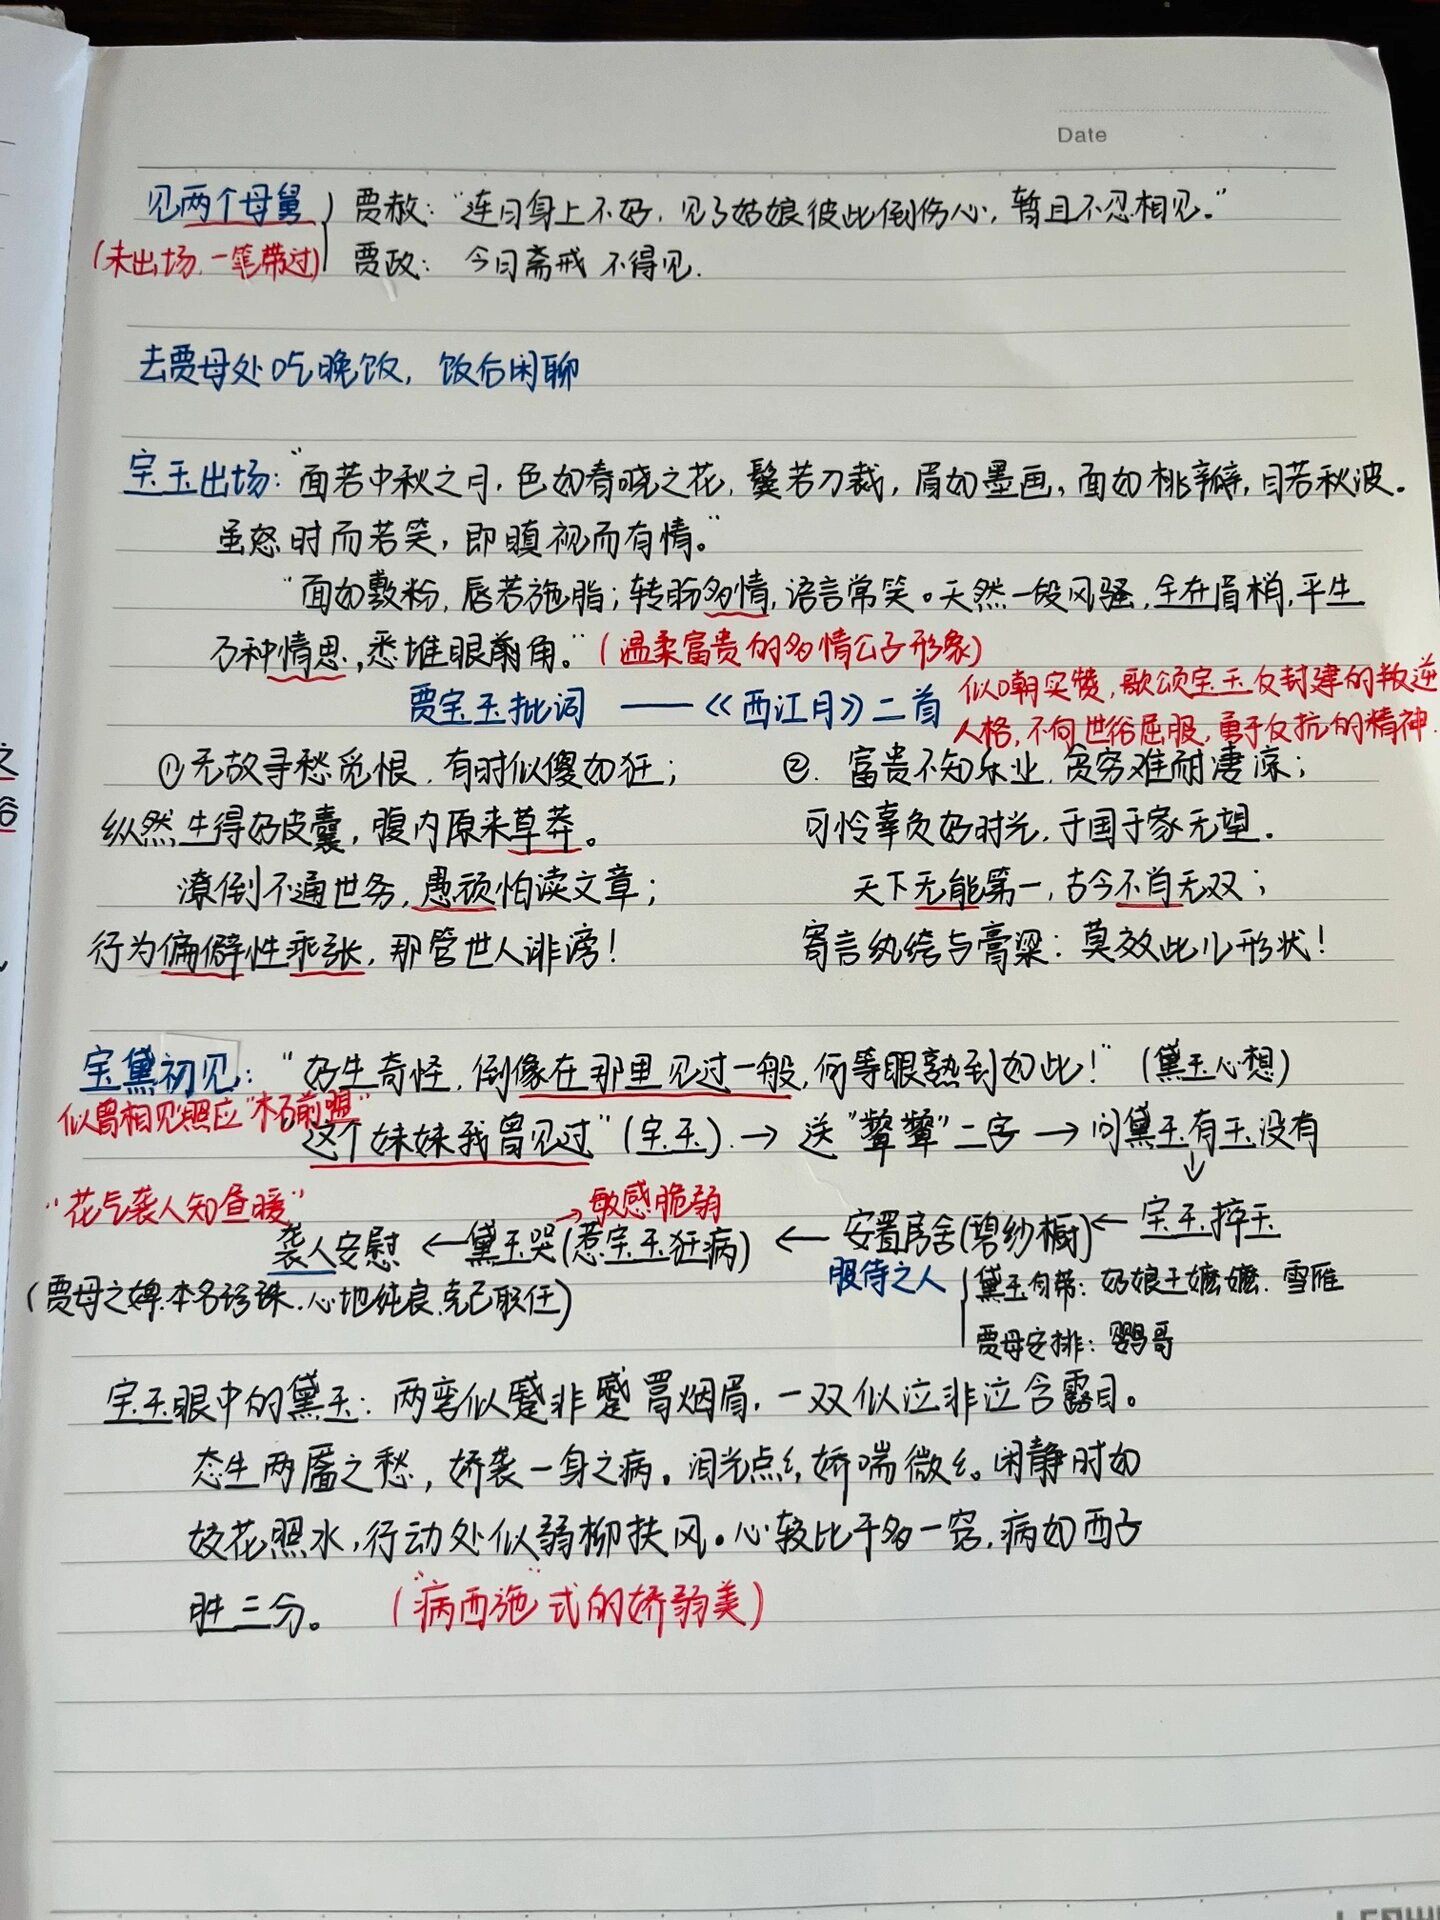 Date
见两个母舅 贾赦：“连日身上不好，见了姑娘彼此倒伤心，暂且不忍相见。”
(未出场，一笔带过) 贾政：今日斋戒 不得见.
去贾母处吃晚饭，饭后闲聊
宝玉出场：“面若中秋之月，色如春晓之花，鬓若刀裁，眉如墨画，面如桃瓣，目若秋波。
虽怒时而若笑，即瞋视而有情。”
“面如敷粉，唇若施脂；转盼多情，语言常笑。天然一段风骚，全在眉梢，平生
万种情思，悉堆眼角。”(温柔富贵的多情公子形象)
贾宝玉批词 ——《西江月》二首
似嘲实赞，歌颂宝玉反封建的叛逆
人格，不向世俗屈服，勇于反抗的精神.
①无故寻愁觅恨，有时似傻如狂；
纵然生得好皮囊，腹内原来草莽。
潦倒不通世务，愚顽怕读文章；
行为偏僻性乖张，那管世人诽谤！
②. 富贵不知乐业，贫穷难耐凄凉；
可怜辜负好时光，于国于家无望.
天下无能第一，古今不肖无双；
寄言纨绔与膏粱：莫效此儿形状！
宝黛初见：“好生奇怪，倒像在那里见过一般，何等眼熟到如此！”(黛玉心想)
似曾相见照应“木石前盟”
“这个妹妹我曾见过”(宝玉). → 送“颦颦”二字 → 问黛玉有玉没有
↓
“花气袭人知昼暖” → 敏感脆弱
袭人安慰 ← 黛玉哭(惹宝玉狂病) ← 安置房舍(碧纱橱) ← 宝玉摔玉
(贾母之婢.本名珍珠.心地纯良.克己职任)
服侍之人 黛玉自带：奶娘王嬷嬷. 雪雁
贾母安排：鹦哥
宝玉眼中的黛玉：两弯似蹙非蹙罥烟眉，一双似泣非泣含露目。
态生两靥之愁，娇袭一身之病。泪光点点，娇喘微微。闲静时如
姣花照水，行动处似弱柳扶风。心较比干多一窍，病如西子
胜三分。 (“病西施”式的娇弱美)